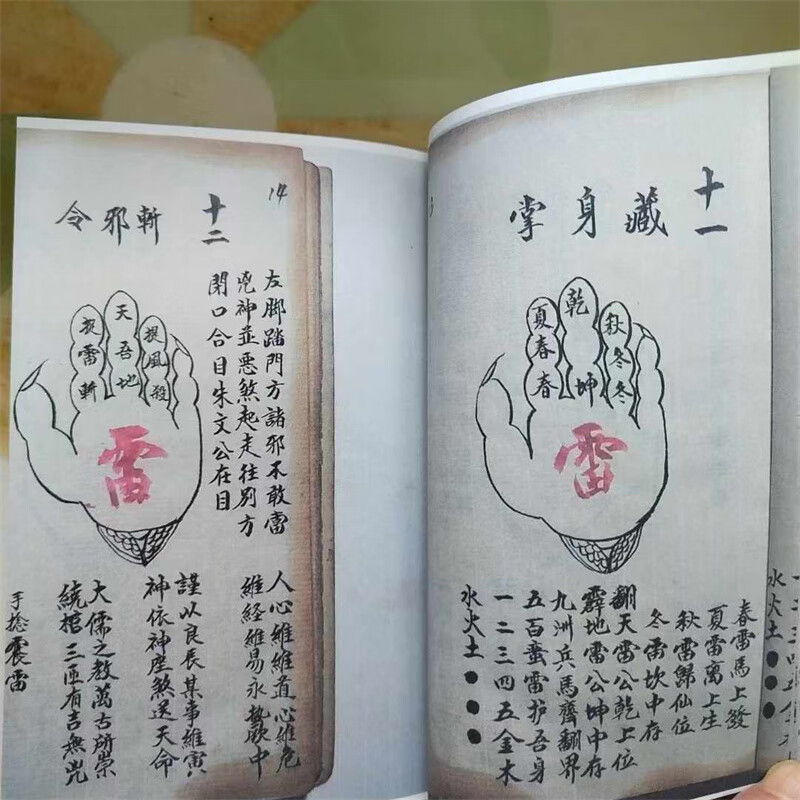 十一
藏身掌
秋冬冬
乾坤
夏春春
雷
春雷馬上發
夏雷離上生
秋雷歸仙位
冬雷坎中存
翻天雷公乾上位
霹地雷公坤中存
九洲兵馬齊翻界
五百蠻雷护吾身
一二三四五金木
水火土●●●
14
十二
斬邪令
左脚踏門方諸邪不敢當
兇神並惡煞起走往别方
閉口合目朱文公在目
提風殺
天吾地
雷斬
雷
人心維維道心維危
維经維易永執厥中
謹以良辰某事維寅
神依神座煞送天命
大儒之教萬古所崇
繞棺三匝有吉無兇
手捻震雷